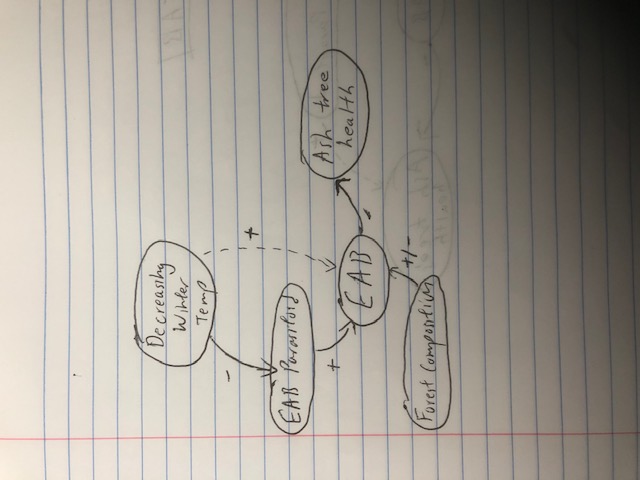 Decreasing
Winter
Temp
-
+
EAB Parasitoid
+
EAB
-
Ash tree
health
+/-
Forest Composition